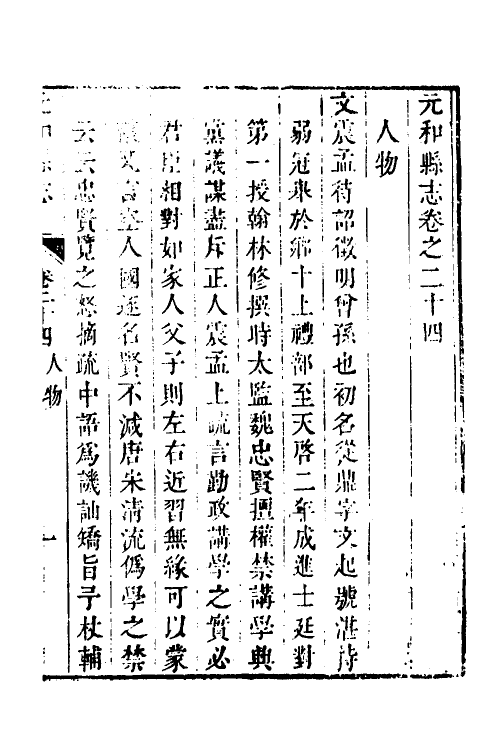 元和縣志卷之二十四
人物
文震孟待詔徵明曾孫也初名從鼎字文起號湛持
弱冠舉於鄉十上禮部至天啓二年成進士廷對
第一授翰林修撰時太監魏忠賢擅權禁講學興
黨議謀盡斥正人震孟上疏言勤政講學之實必
君臣相對如家人父子則左右近習無緣可以蒙
又言空人國逐名賢不減唐宋清流僞學之禁
云云忠賢覽之怒摘疏中語爲譏訕矯旨予杖輔
元和縣志
卷二十四人物
一